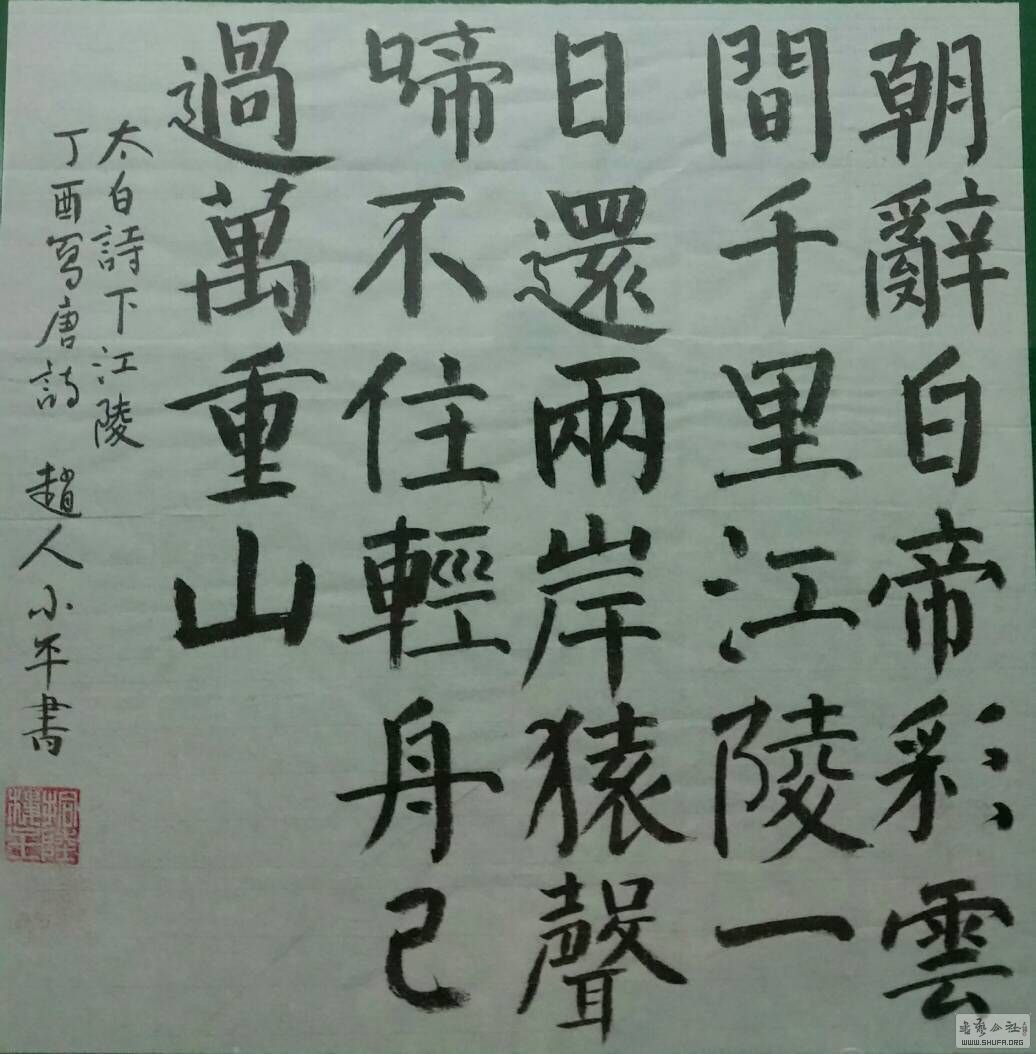 朝辭白帝彩雲
間千里江陵一
日還兩岸猿聲
啼不住輕舟已
過萬重山
太白詩下江陵
丁酉寫唐詩 趙人小平書
WWW.SHUFA.ORG